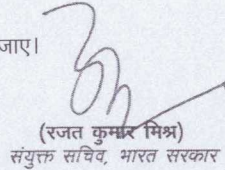 जाए।
(रजत कुमार मिश्र)
संयुक्त सचिव, भारत सरकार